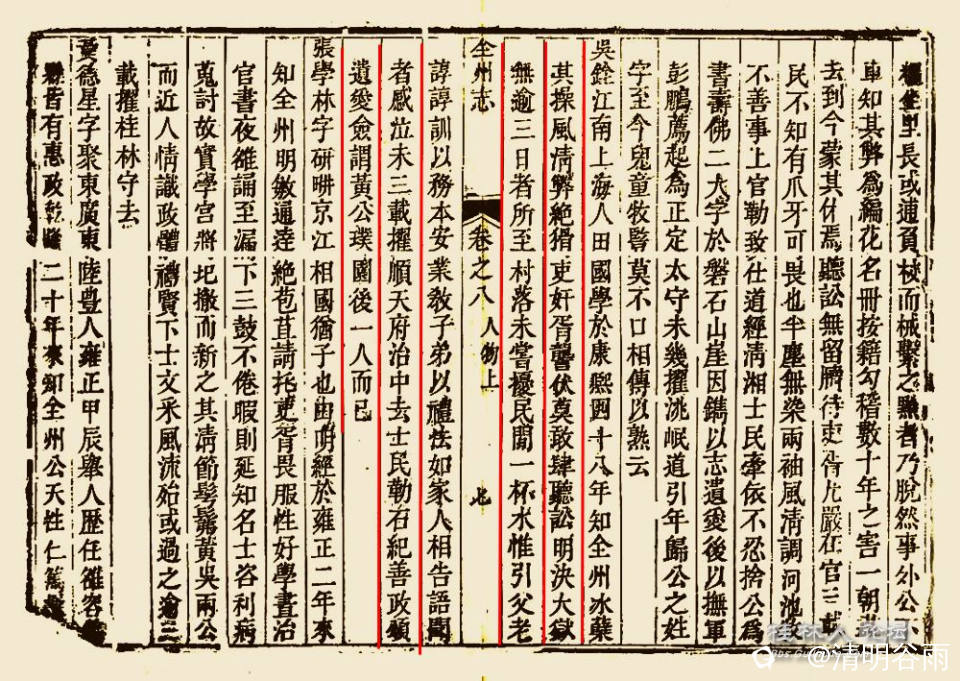 糧坐里長或逋負械而械繫之黠者乃脫然事外公
車知其弊為編花名冊按籍勾稽數十年之害一朝
去到今蒙其休焉聽訟無留牘待吏胥尤嚴在官三載
民不知有爪牙可畏也半塵無染兩袖風清調河池
不善事上官勒致仕道經清湘士民牽依不忍捨公為
書壽佛二大字於磐石山崖因鐫以志遺愛後以撫軍
彭鵬薦起為正定太守未幾擢洮岷道引年歸公之姓
字至今兒童牧豎莫不口相傳以熟云
吳銓江南上海人田國學於康熙四十八年知全州冰蘗
其操風清弊絕猾吏奸胥讋伏莫敢肆聽訟明決大獄
無逾三日者所至村落未嘗擾民間一杯水惟引父老
全州志 卷之八 人物上 七
諄諄訓以務本安業敎子弟以禮法如家人相告語聞
者感泣未三載擢順天府治中去士民勒石紀善政頌
遺愛僉謂黃公璞園後一人而已
張學林字研畊京江相國猶子也由明經於雍正二年來
知全州明敏通達絕苞苴請托吏胥畏服性好學晝治
官書夜雒誦至漏下三鼓不倦暇則延知名士咨利病
蒐討故實學宮將圯撤而新之其清節髣髴黃吳兩公
而近人情識政體禮賢下士文采風流始或過之逾三
載擢桂林守去
黃德星字聚東廣東陸豐人雍正甲辰舉人歷任雒容
縣皆有惠政乾隆二十年來知全州公天性仁
桂林人论坛
@清明谷雨